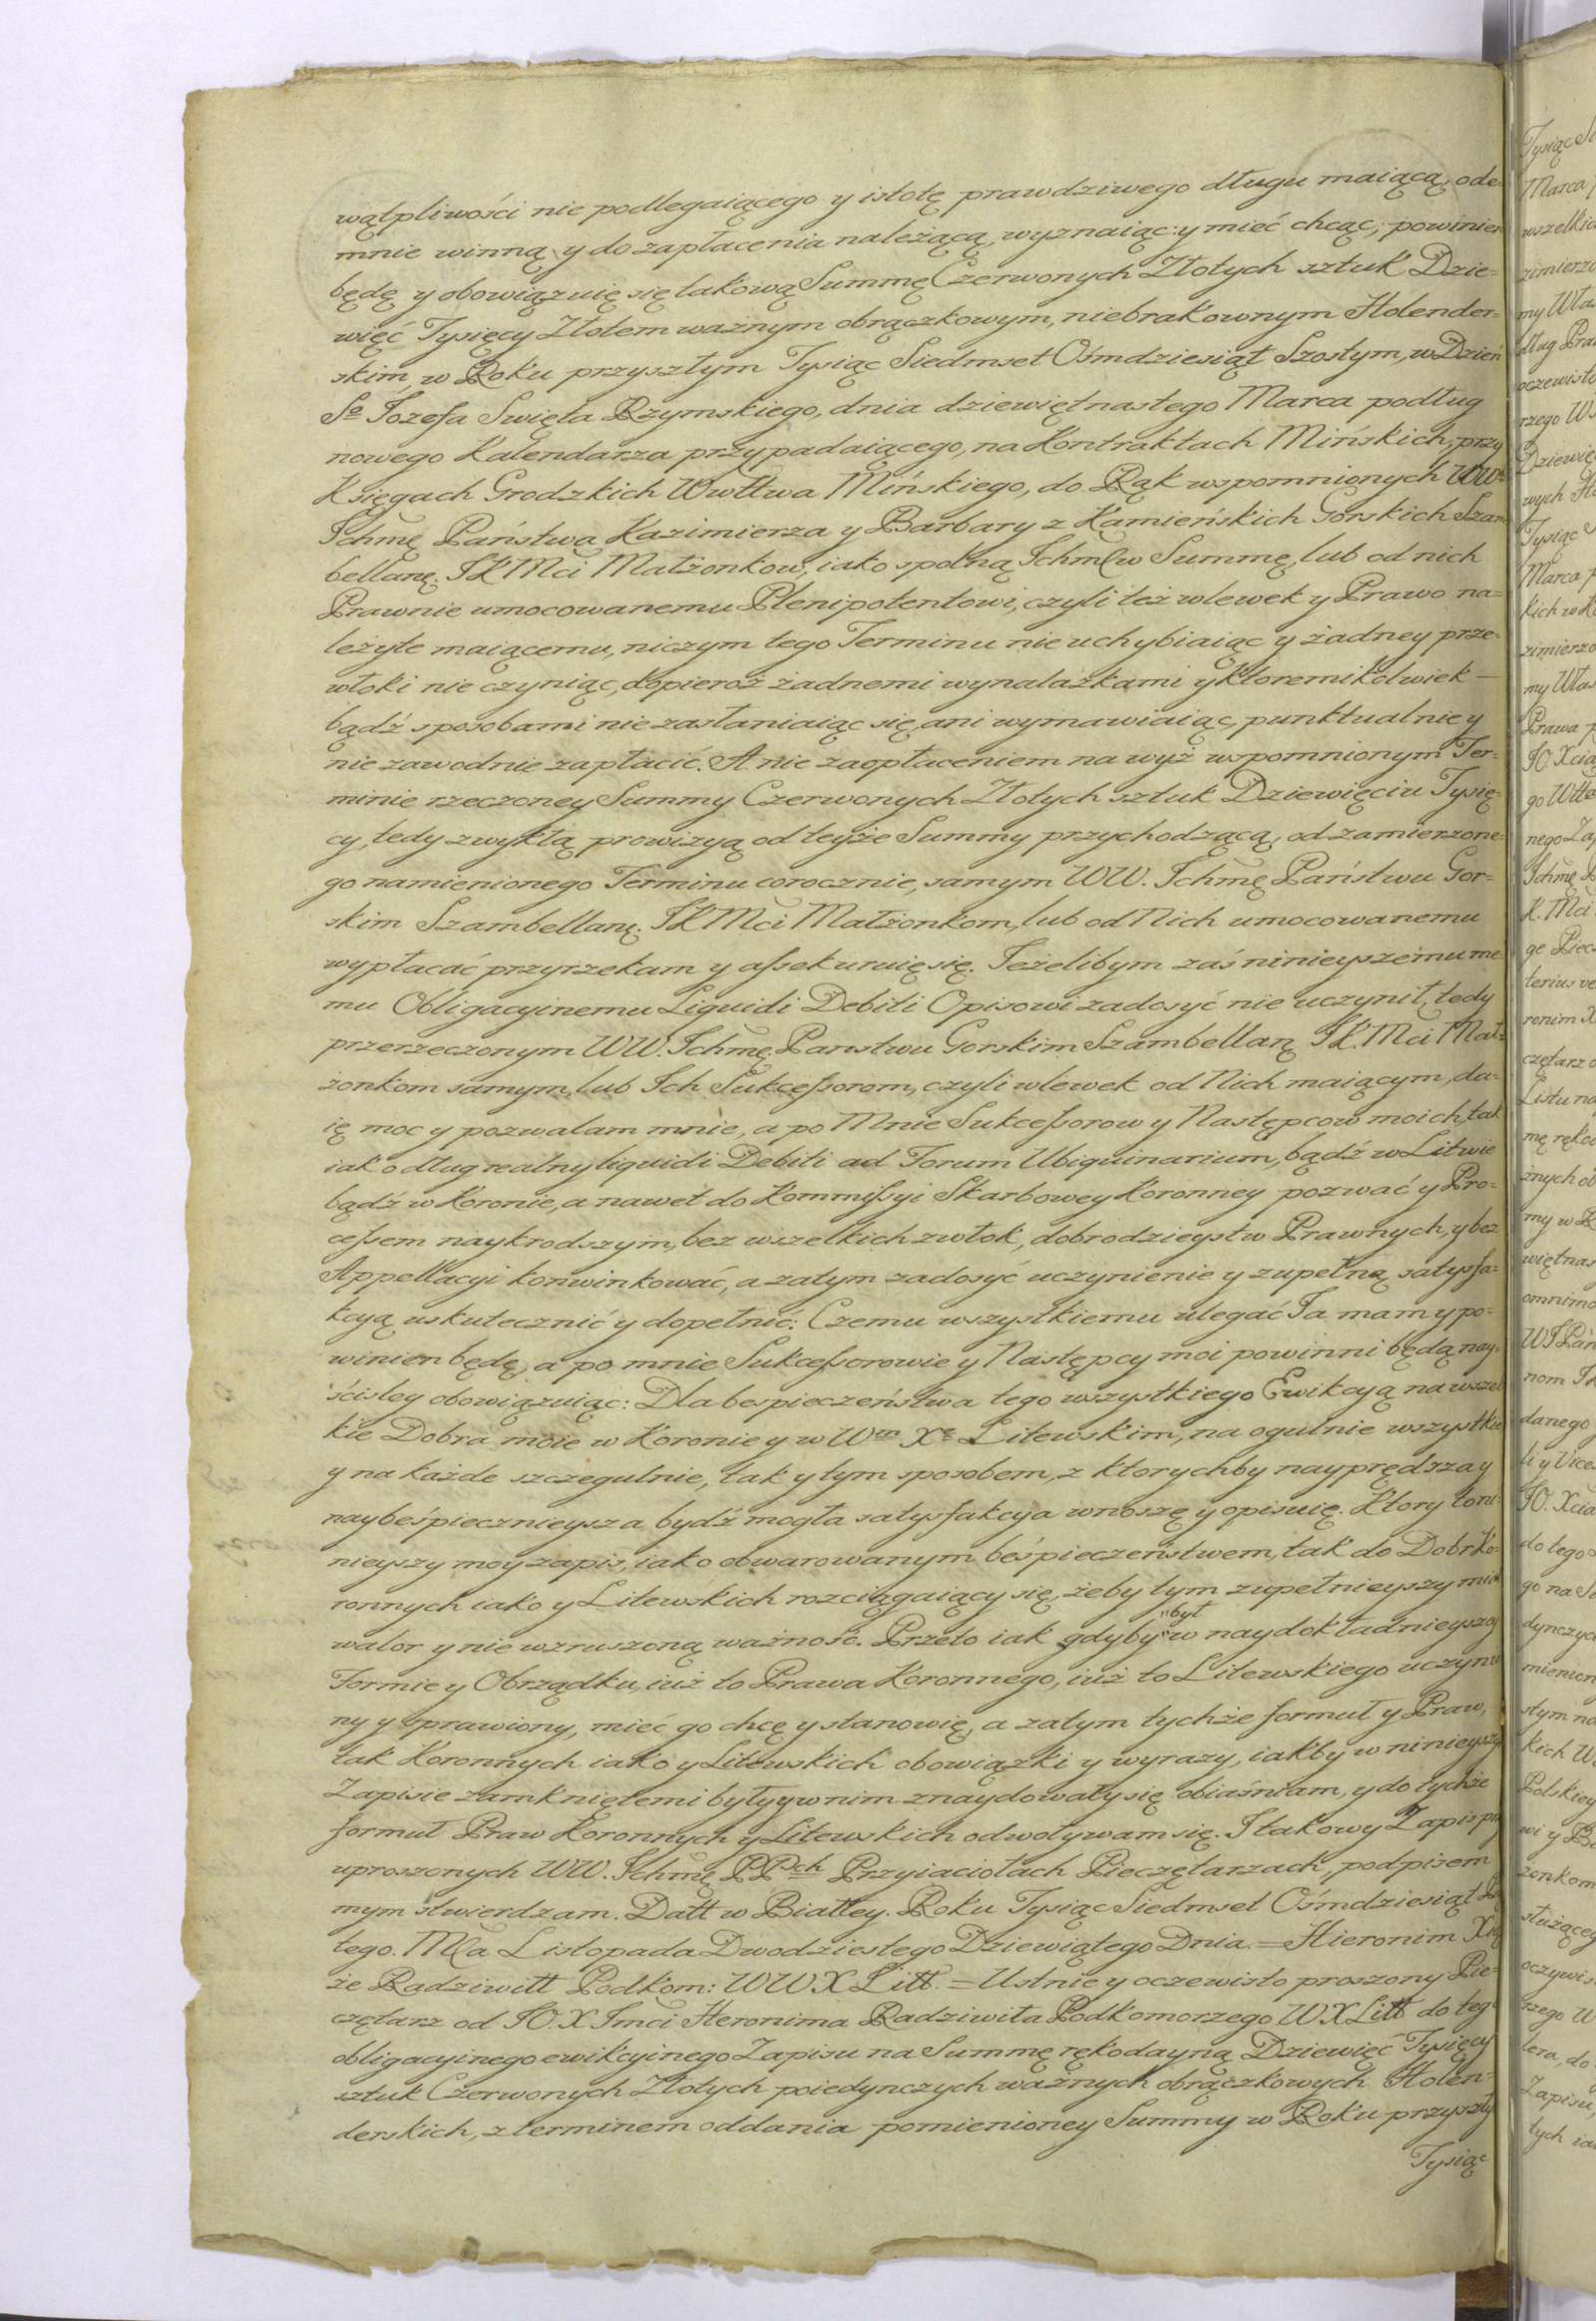 wątpliwości nie podlegaiącego y istotę prawdziwego długu maiącą, ode-
mnie winną y do zapłacenia należącą, wyznaiąc: y mieć chcąc; powinien
będę y obowiązuię się takową Summę Czerwonych Złotych sztuk Dzie-
więć Tysięcy Złotem ważnym obrączkowym, niebrakownym Holender-
skim, w Roku przyszłym Tysiąc Siedmset Ośmdziesiąt Szostym, w Dzień
So Jozefa Swięta Rzymskiego, dnia dziewiętnastego Marca podług
nowego Kalendarza przypadaiącego, na Kontraktach Mińskich, przy
Xięgach Grodzkich Wwttwa Mińskiego, do Rąk wspomnionych WW.
Ichmę Państwa Kazimierza y Barbary z Kamieńskich Gorskich Szam-
bellanę. JKMci Małżonkow, iako spolną Ichmćw Summę, lub od nich
Prawnie umocowanemu Plenipotentowi, czyli też wlewek y Prawo na-
leżyte maiącemu, niczym tego Terminu nie uchybiaiąc y żadney prze-
włoki nie czyniąc, dopieroż żadnemi wynalazkami y ktoremikolwiek —
bądź sposobami nie zasłaniaiąc się, ani wymawiaiąc, punktualnie y
nie zawodnie zapłacić. A nie zaopłaceniem na wyż wspomnionym Ter-
minie rzeczoney Summy Czerwonych Złotych sztuk Dziewięciu Tysię-
cy, tedy zwykłą prowizyą od teyże Summy przychodzącą, od zamierzone-
go namienionego Terminu corocznie, samym WW. Ichmę Państwu Gor-
skim Szambellanę. JKMci Małżonkom, lub od Nich umocowanemu
wypłacać przyrzekam y assekuruię się. Jeżelibym zaś ninieyszemu me-
mu Obligacyinemu Liquidi Debiti Opisowi zadosyć nie uczynił, tedy
przerzeczonym WW. Ichmę Panstwu Gorskim Szambellanę JK.Mci Mał-
żonkom samym, lub Ich Sukcessorom, czyli wlewek od Nich maiącym, da-
ię moc y pozwalam mnie, a po Mnie Sukcessorow y Następcow moich, tak
iako dług realny liquidi Debiti ad Forum Ubiquinarium, bądź w Litwie
bądź w Koronie, a nawet do Kommissyi Skarbowey Koronney pozwać y Pro-
cessem naykrodszym, bez wszelkich zwłok, dobrodzieystw Prawnych, y bez
Appellacyi konwinkować, a zatym zadosyć uczynienie y zupełną satysfa-
kcyą uskutecznić y dopełnić: Czemu wszystkiemu ulegać Ja mam y po-
winien będę, a po mnie Sukcessorowie y Następcy moi powinni będą nay-
ściśley obowiązuiąc: Dla bespieczeństwa tego wszystkiego Ewikcyą na wszel-
kie Dobra moie w Koronie y w Wm Xe Litewskim, na ogulnie wszystkie
y na każde szczegulnie, tak y tym sposobem, z ktorychby nayprędsza y
naybeśpiecznieysza bydź mogła satysfakcyia wnoszę y opisuię. Ktory to ni-
nieyszy moy zapis, iako obwarowanym beśpieczeństwem, tak do Dobr Ko-
ronnych iako y Litewskich rozciągaiący się, żeby tym zupełnieyszy miał
walor y nie wzruszoną ważność. Przeto iak gdyby "był" w naydokładnieyszey
Formie y Obrządku, iuż to Prawa Koronnego, iuż to Litewskiego uczynio-
ny y sprawiony, mieć go chcę y stanowię, a zatym tychże formuł y Praw,
tak Koronnych iako y Litewskich obowiązki y wyrazy, iakby w ninieyszym
Zapisie zamkniętemi były y w nim znaydowały się obiaśniam, y do tychże
formuł Praw Koronnych y Litewskich odwoływam się. I takowy Zapis przy
uproszonych WW. Ichmę PPch Przyiaciołach Pieczętarzach, podpisem
mym stwierdzam. Datt w Białley. Roku Tysiąc Siedmset Ośmdziesiąt Pią-
tego. Mca Listopada Dwodziestego Dziewiątego Dnia = Hieronim Xią-
że Radziwiłł Podkom: WWXLitt. = Ustnie y oczewisto proszony Pie-
czętarz od JO. X Jmci Heronima Radziwiła Podkomorzego WXLitt do tego
obligacyinego ewikcyinego Zapisu na Summę rękodayną Dziewięć Tysięcy
sztuk Czerwonych Złotych poiedynczych ważnych obrączkowych Holen-
derskich, z terminem oddania pomienioney Summy w Roku przyszły
Tysiąc